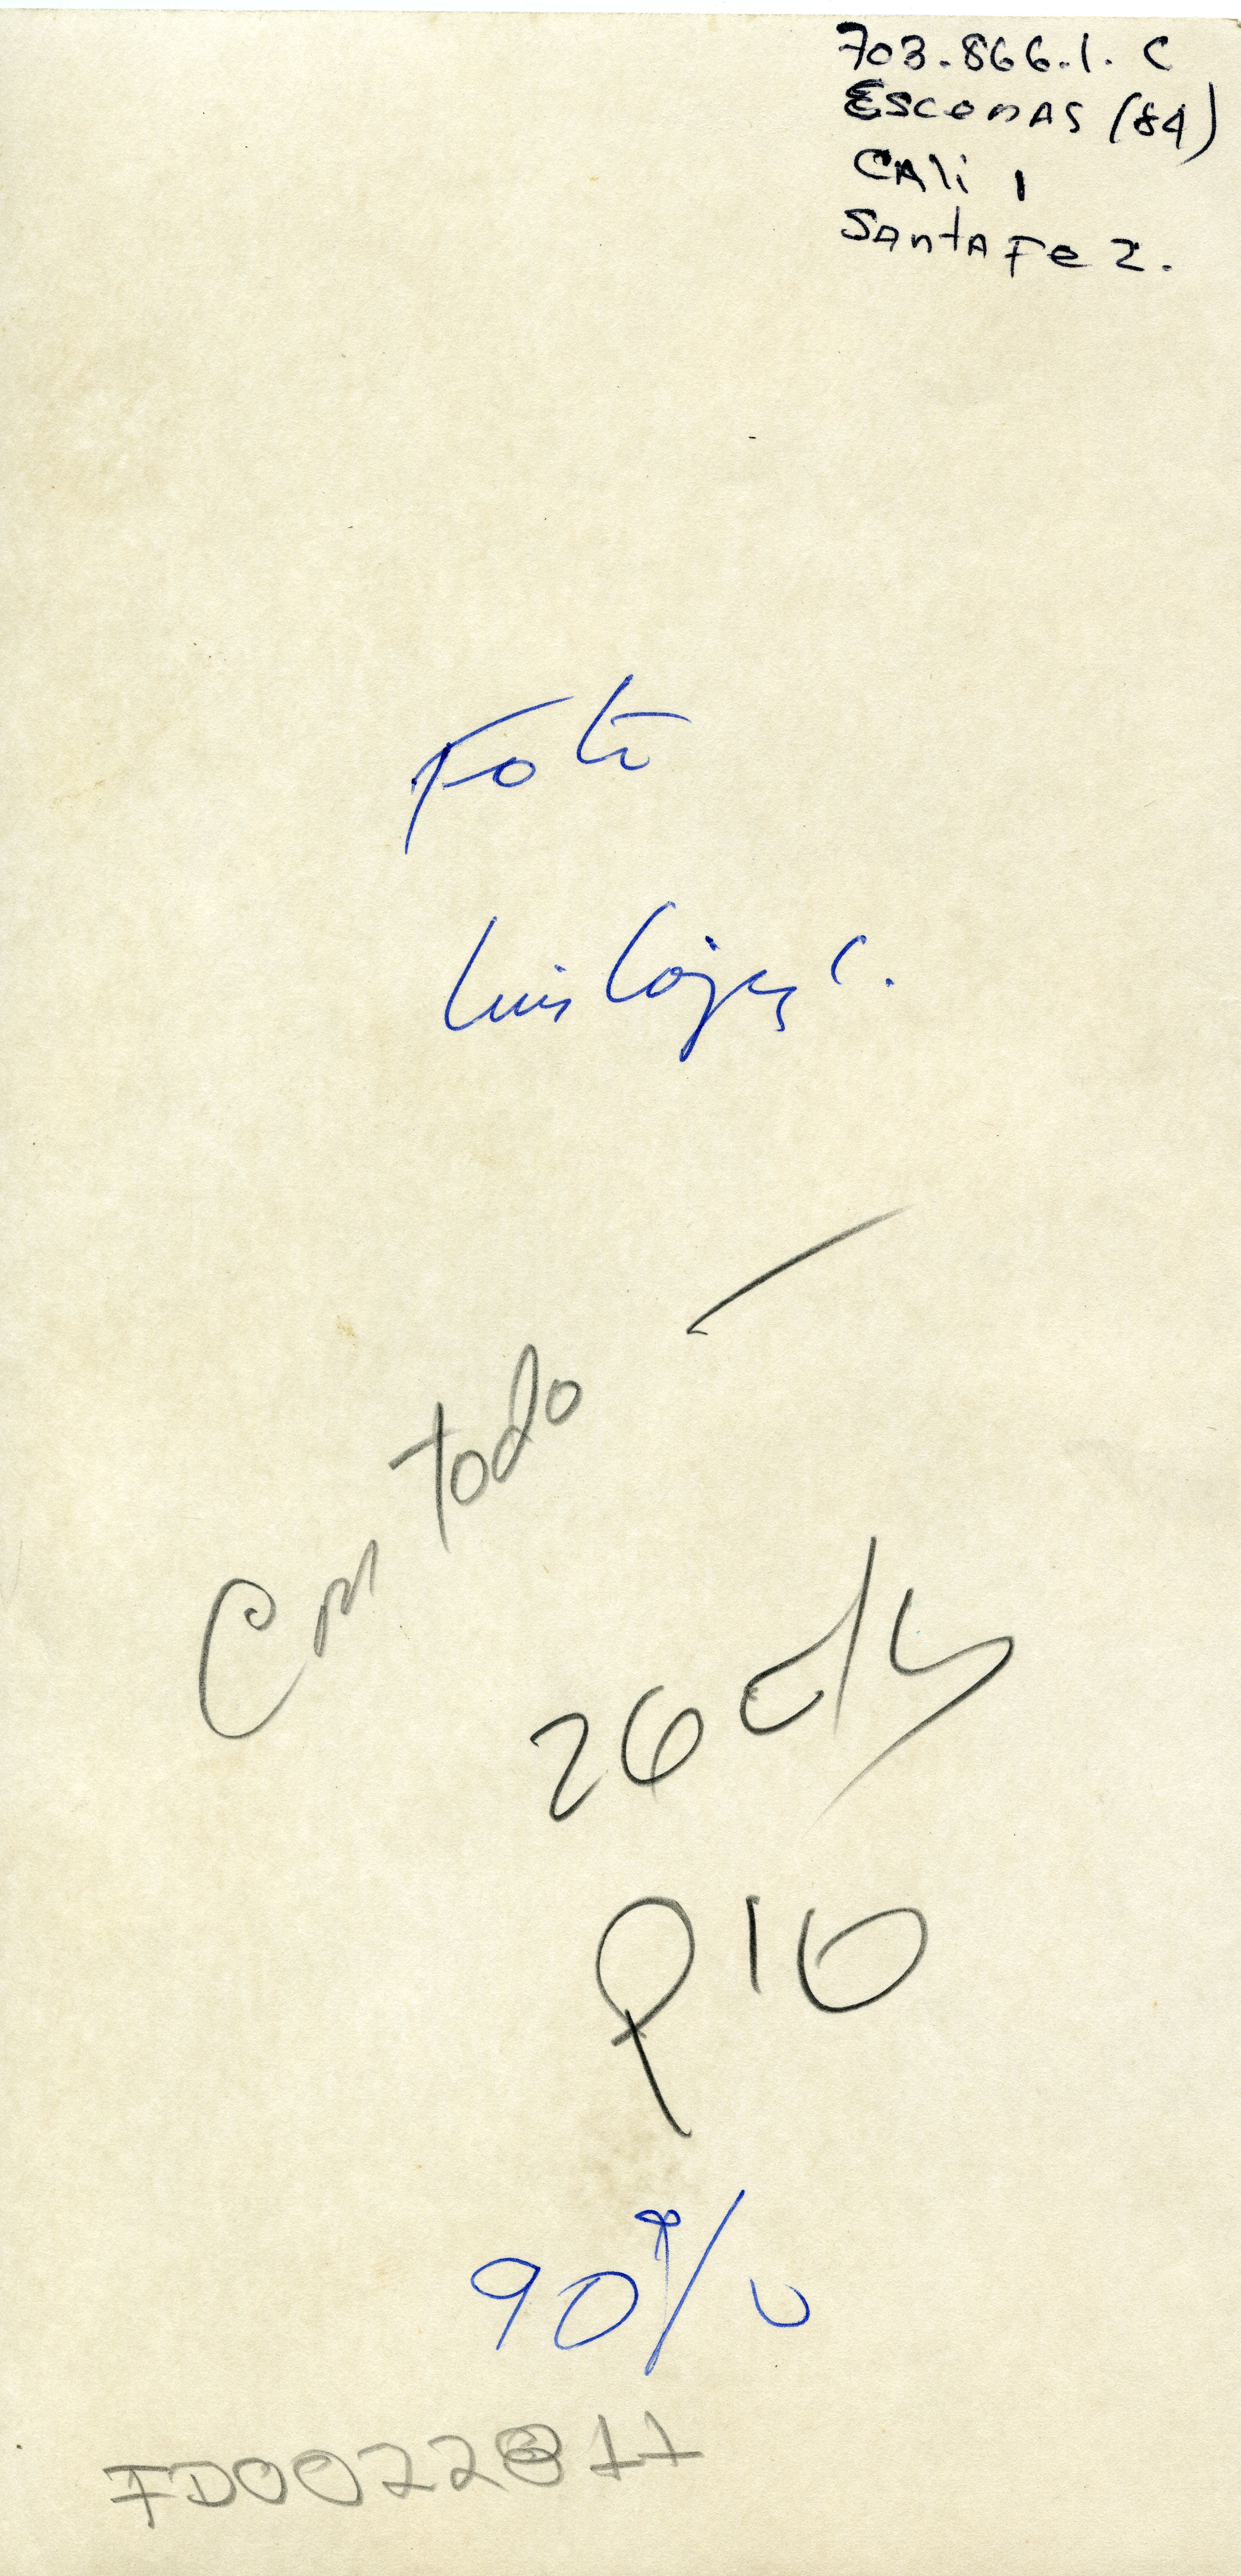 703.866.1. C
Escenas (84)
Cali 1
Santa Fe 2.
Foto
Luis C.
Con todo
26
P10
90%
FD0022811